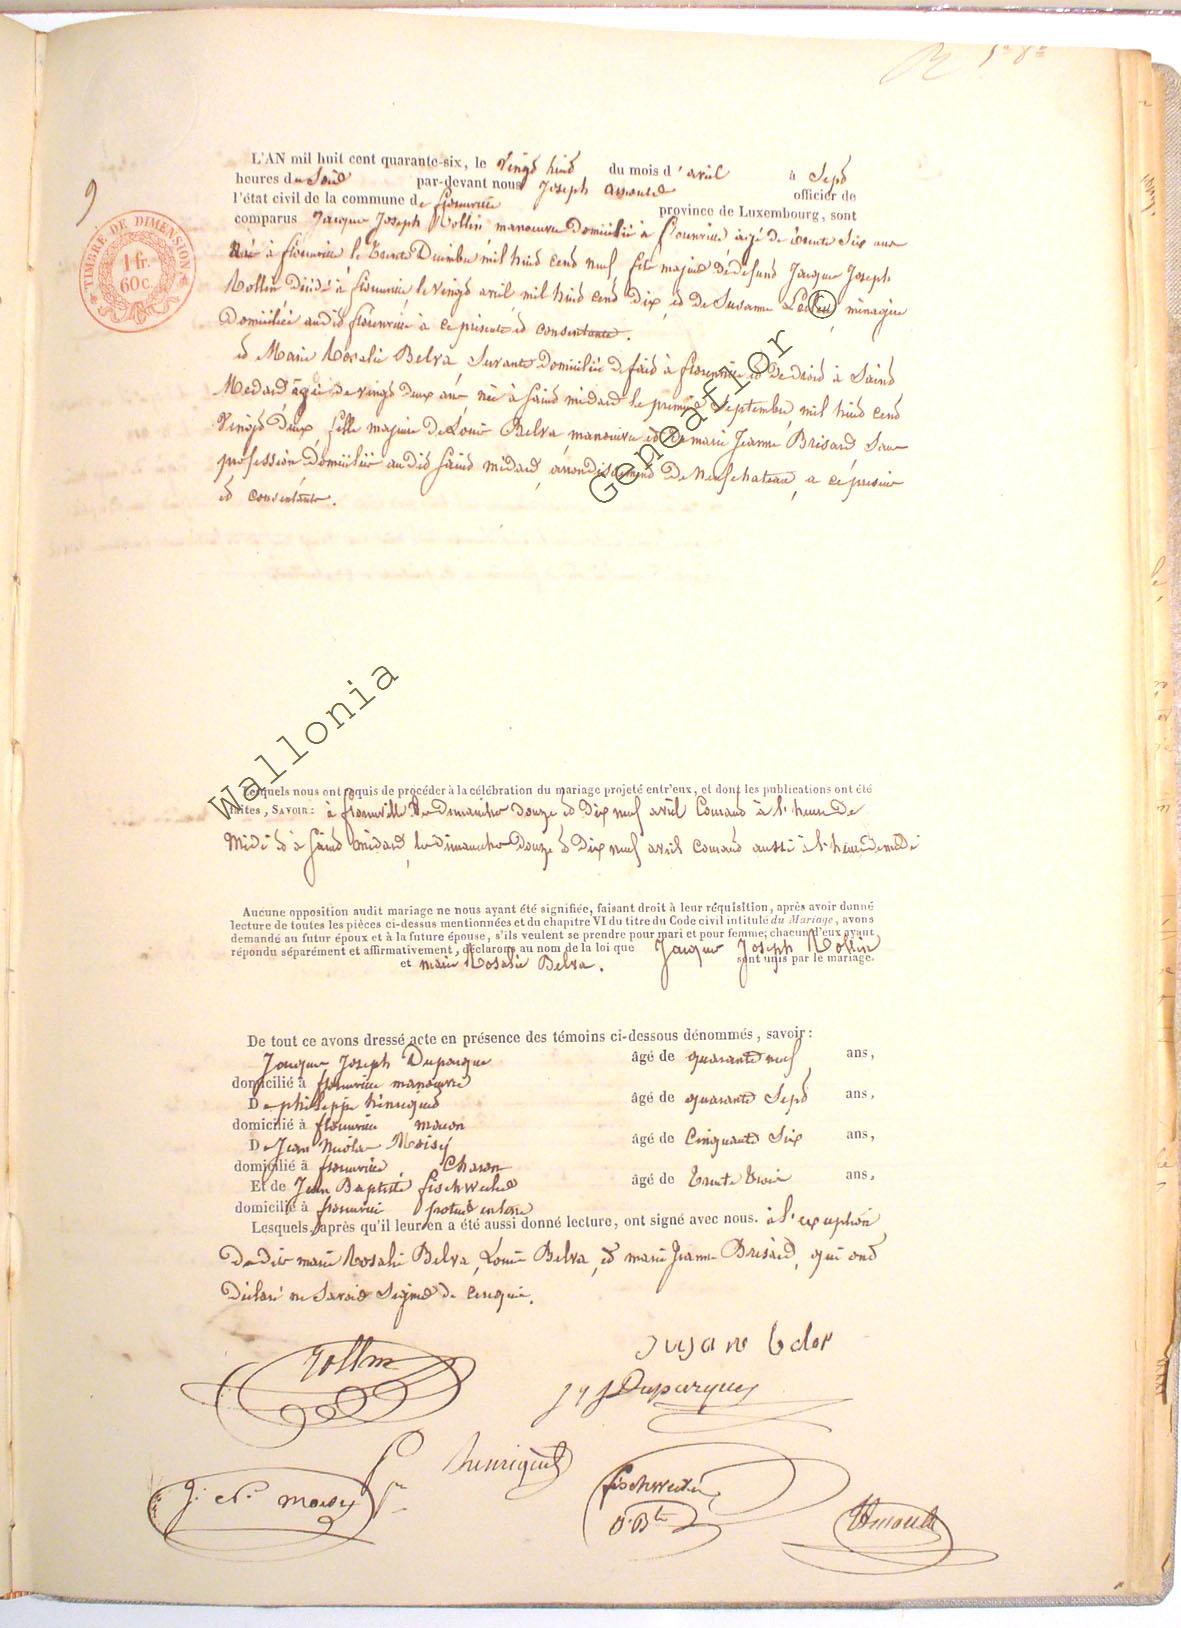 9
TIMBRE DE DIMENSION
1 fr.
60 c.
L'AN mil huit cent quarante-six, le vingt huit du mois d'avril à sept
heures du soir par-devant nous Joseph Arnould officier de
l'état civil de la commune de florenville province de Luxembourg, sont
comparus Jacque Joseph Rollin manoeuvre Domicilié à florenville agé de trente six ans
Né à florenville le trente Decembre mil huit cent neuf fils majeur de defunt Jacque Joseph
Rollin décédé à florenville le vingt avril mil huit cent Dix, et de Susanne menagère
Domiciliée audit florenville à ce presente et consentante.
et Marie Rosalie Belva Servante Domiciliée de fait à florenville et De Droit à Saint
Medard agée de vingt Deux ans née à Saint médard le premier Septembre mil huit cent
Vingt Deux fille majeure de Louis Belva, manoeuvre et De marie Jeanne Brisard San
profession Domicilié audit Saint médard, arrondissement De Neufchateau, a ce présent
et consentante.
Wallonia Geneaflor ©
Lesquels nous ont requis de procéder à la célébration du mariage projeté entr'eux, et dont les publications ont été
faites, SAVOIR : à florenville le dimanche douze et dix neuf avril Courant à l'heure De
Midi et à Saint médard, le dimanche Douze et Dix neuf avril courant aussi à l'heure de midi
Aucune opposition audit mariage ne nous ayant été signifiée, faisant droit à leur réquisition, après avoir donné
lecture de toutes les pièces ci-dessus mentionnées et du chapitre VI du titre du Code civil intitulé du Mariage, avons
demandé au futur époux et à la future épouse, s'ils veulent se prendre pour mari et pour femme; chacun d'eux ayant
répondu séparément et affirmativement, déclarons au nom de la loi que Jacque Joseph Rollin
et marie Rosalie Belva. sont unis par le mariage.
De tout ce avons dressé acte en présence des témoins ci-dessous dénommés, savoir :
Jacque Joseph Duparque âgé de quarante neuf ans,
domicilié à florenville manoeuvre
De philippe henriquet âgé de quarante Sept ans,
domicilié à florenville macon
De Jean Nicola Moisy âgé de Cinquante Six ans,
domicilié à florenville, Charon
Et de Jean Baptiste fischweiler âgé de trente trois ans,
domicilié à florenville
Lesquels, après qu'il leur en a été aussi donné lecture, ont signé avec nous. à l'exception
Dedite marie Rosalie Belva, Louis Belva, et marie Jeanne Brisard, qui ont
Déclaré ne Savoir Signer de ce requis.
Rollin
susane
J J Duparque
henriquet
J. N. moisy
fischweiler
J. Bte
Arnould